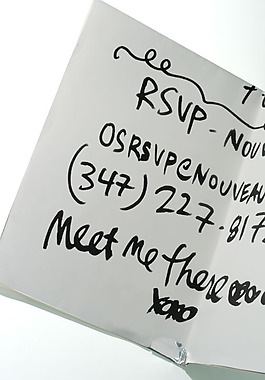 RSVP - NOUV
OSRSVP@NOUVEAU
(347) 227.817
Meet me there
xoxo